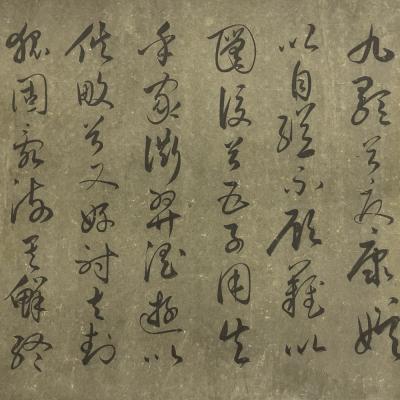 九歌兮夏康娛
以自縱不顧難以
圖後兮五子用失
乎家衖羿淫遊以
佚畋兮又好射夫封
狐固亂流其鮮終